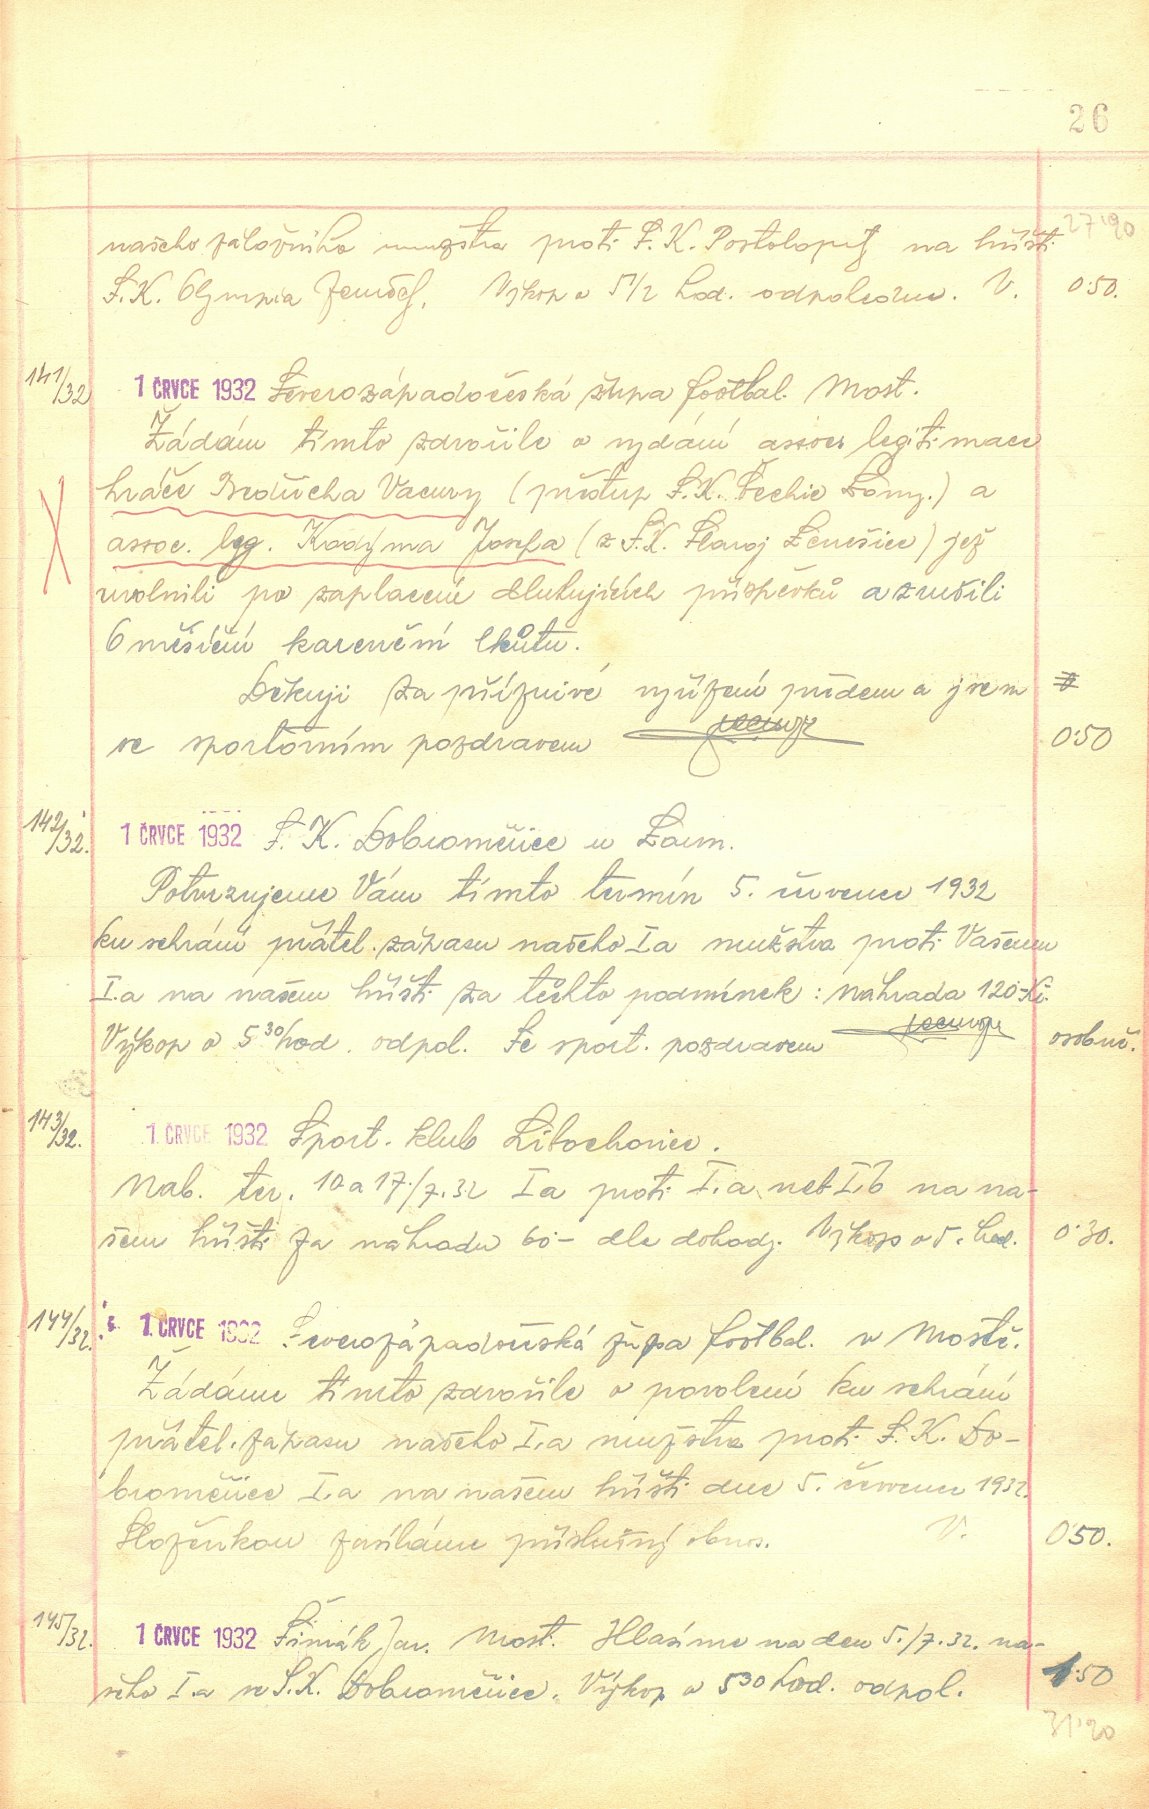 26
27·90
našeho záložního mužstva proti S.K. Postoloprty na hřišti
S.K. Olympia Zeměchy. Výkop o 5 1/2 hod. odpoledne. V. 0·50.
141/32 1 ČRVCE 1932 Severozápadočeská župa footbal. Most.
Žádám tímto zdvořile o vydání assoc legitimace
hráče Bedřicha Vacury (přestup S.K. Čechie Louny.) a
assoc. leg. Kodyma Josefa (z S.K. Slavoj Lenešice) jež
uvolnili po zaplacení dlužujících příspěvků a zrušili
6 měsíční karenční lhůtu.
Děkuji za příznivé vyřízení předem a jsem
se sportovním pozdravem 0·50
142/32. 1 ČRVCE 1932 S. K. Dobroměřice u Loun.
Potvrzujeme Vám tímto termín 5. července 1932
ku sehrání přátel. zápasu našeho I a mužstva proti Vašemu
I.a na našem hřišti za těchto podmínek: náhrada 120·- Kč.
Výkop o 5 30 hod. odpol. Se sport. pozdravem osobně.
143/32. 1 ČRVCE 1932 Sport. klub Libochovice.
Nab. ter. 10 a 17./7.32 I a proti I.a neb I.b na na-
šem hřišti za náhradu 60·- dle dohody. Výkop o 5. hod. 0·30.
144/32. 1 ČRVCE 1932 Severozápadočeská župa footbal. v Mostě.
Žádáme tímto zdvořile o povolení ku sehrání
přátel. zápasu našeho I.a mužstva proti S.K. Do-
broměřice I.a na našem hřišti dne 5. července 1932.
Složenkou zasíláme příslušný obnos. V. 0·50.
145/32. 1 ČRVCE 1932 Šimák Jar. Most. Hlasíme na den 5./7.32. na-
šeho I.a se S.K. Dobroměřice. Výkop o 5 30 hod. odpol. 1·50
31·90